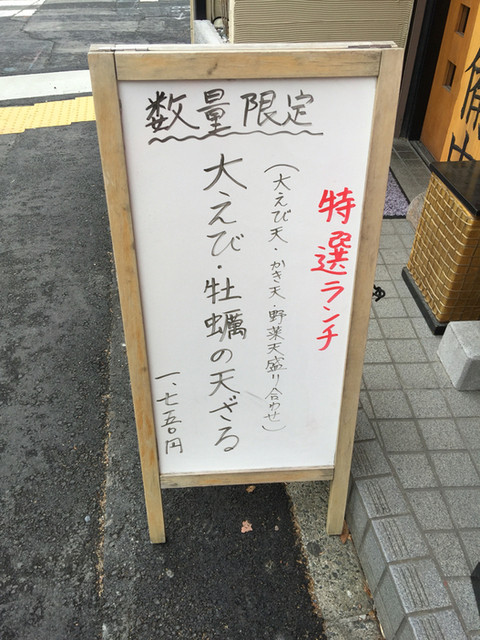 数量限定
特選ランチ
(大えび天・かき天・野菜天盛り合わせ)
大えび・牡蠣の天ざる
一、七五〇円